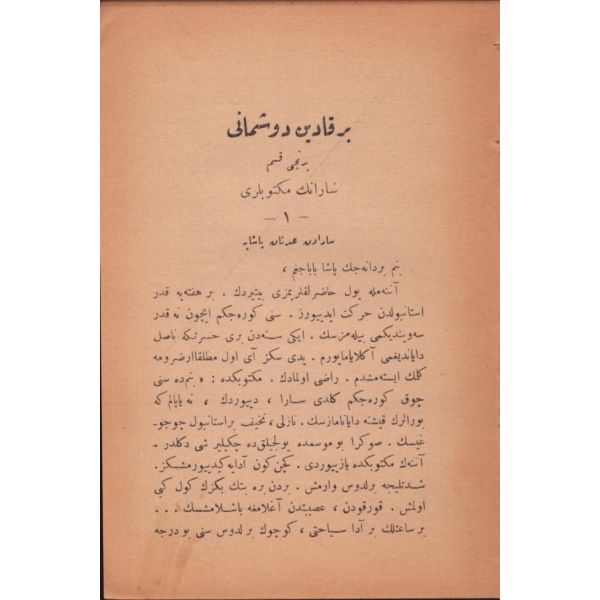 بر قادين دوشمانى
برنجى قسم
سارانك مكتوبلرى
— ١ —
سارادن عدنان پاشايه
بنم بردانه‌جك پاشا باباجغم ،
آننه‌مله يول حاضرلقلريمزى بيتيردك . بر هفته‌يه قدر
استانبولدن حركت ايدييورز . سنى كوره‌جكم ايچون نه قدر
سه‌وينديكمى بيله‌مزسك . ايكى سنه‌دن برى حسرتكه ناصل
دايانديغمى آكلايامايورم . يدى سكز آى اول مطلقا ارضرومه
كلمك ايسته‌مشدم . راضى اولمادك . مكتوبكده : « بنم‌ده سنى
چوق كوره‌جكم كلدى سارا ، دييوردك ، نه ياپالم كه
بورالرك قيشنه دايانامازسك . نازلى ، نحيف بر استانبول چوجو-
غيسك . صوكرا بو موسمده يولجيلق‌ده چكيلير شى دكلدر .
آننه‌ك مكتوبكده يازييوردى . كچن كون آدايه كيدييورمشسكز .
شدتليجه بر لدوس وارمش . بردن بره بتك بكزك كول كبى
اولمش . قورقودن ، عصبيتدن آغلامغه باشلامشسك . . .
بر ساعتلك بر آدا سياحتى ، كوچوك بر لدوس سنى بو درجه